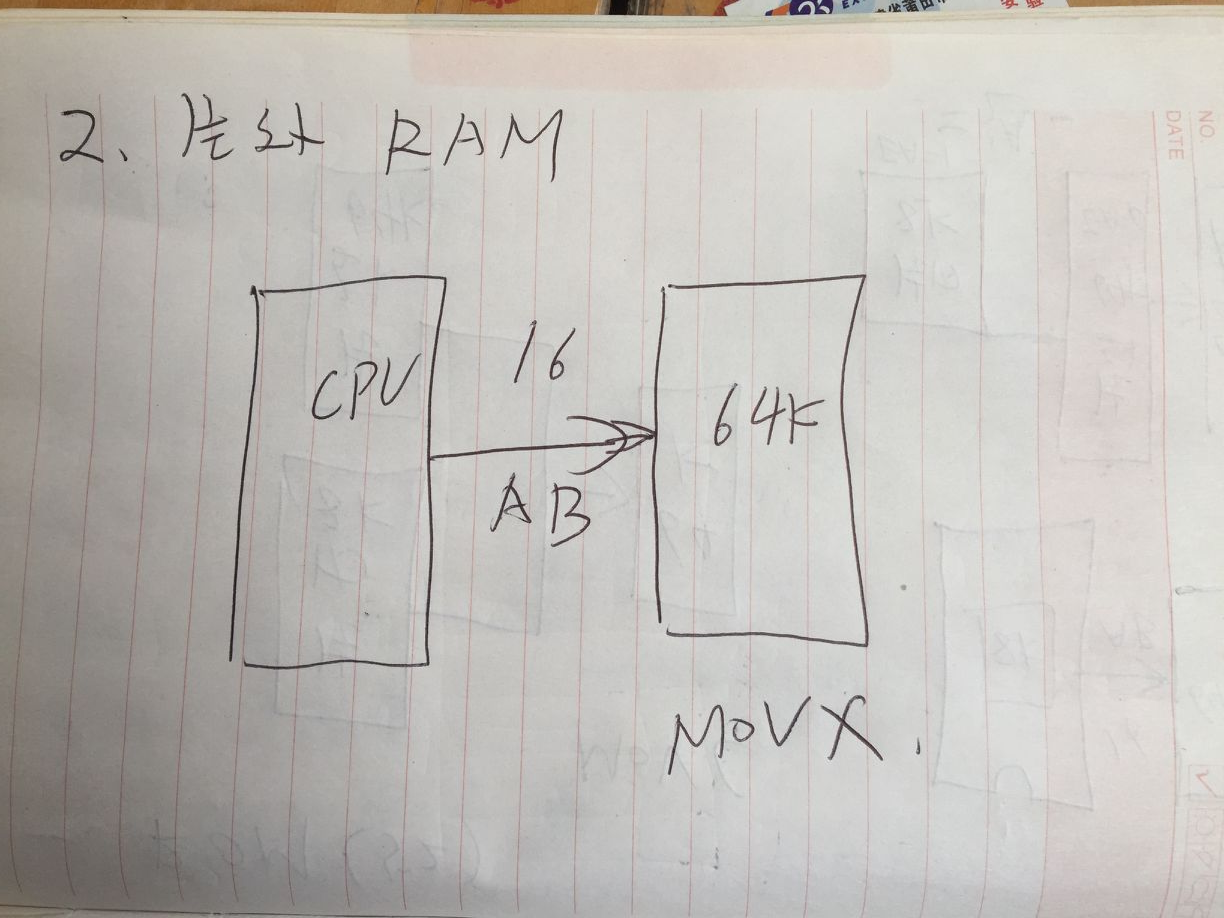 2、片外 RAM
CPU
16
AB
64K
MOVX.
NO.
DATE